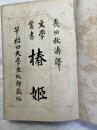 長田秋濤譯
文學叢書
椿姫
早稲田大學出版部藏版